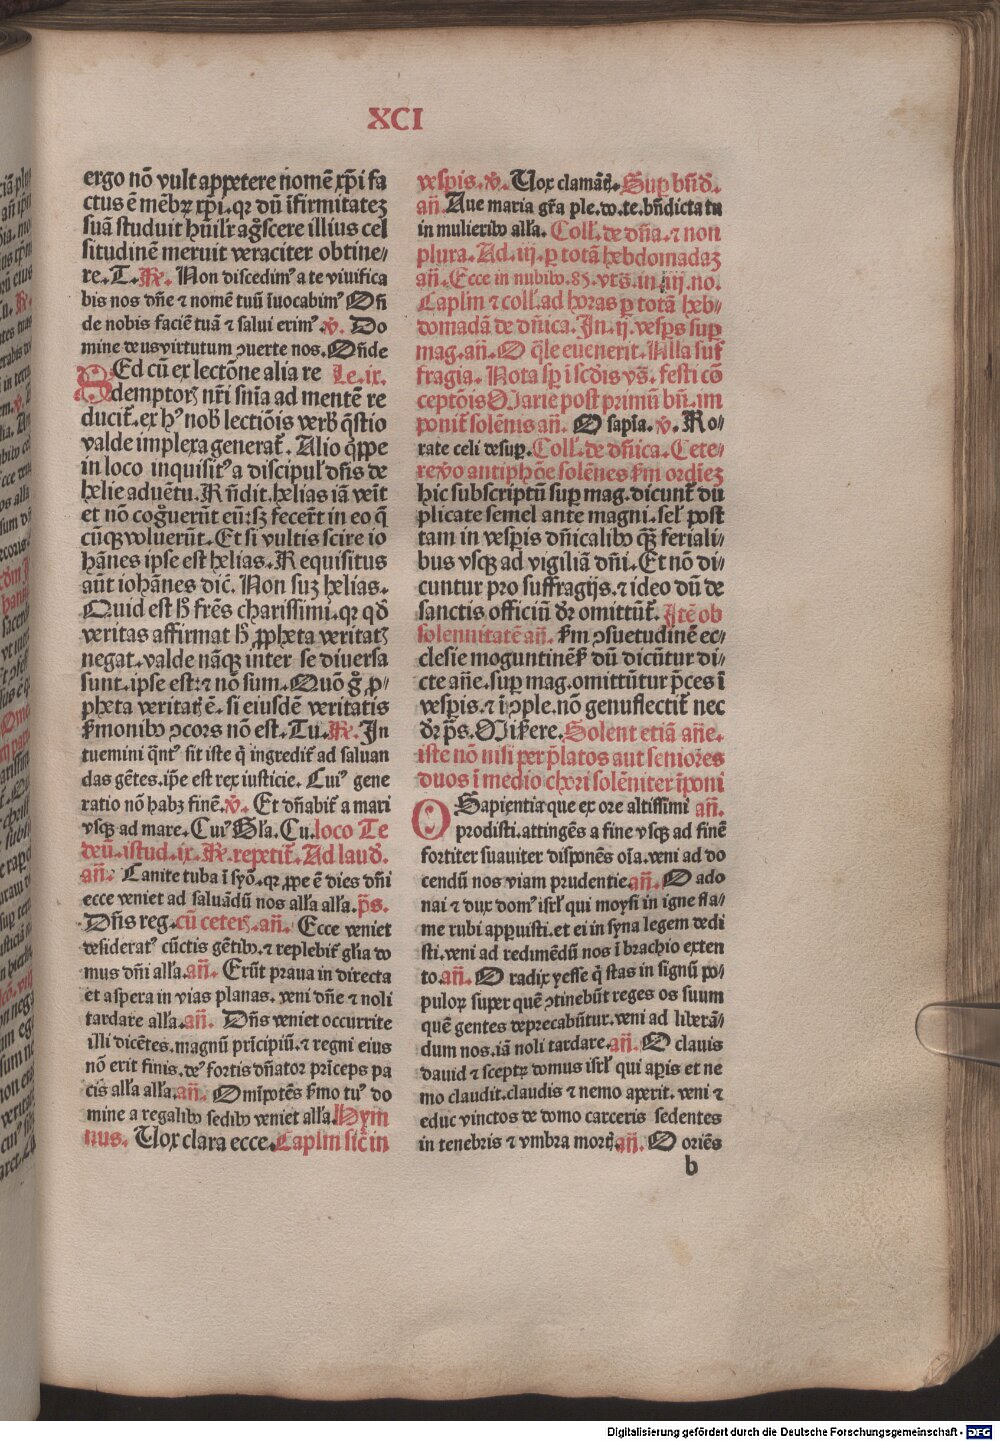 XCI
ergo nõ vult appetere nomẽ xp̃i fa
ctus ẽ mẽbꝝ xp̃i. qꝛ dũ ĩfirmitateȝ
suã studuit hũilr̃ ag̃scere illius cel
situdinẽ meruit veraciter obtine/
re. T. ꝶ. Non discedimꝰ a te viuifica
bis nos dñe ⁊ nomẽ tuũ ĩuocabimꝰ Oñ
de nobis faciẽ tuã ⁊ salui erimꝰ. ℣. Do
mine deus virtutum ꝯuerte nos. Oñde
SEd cũ ex lectõne alia re Le. ix.
demptorꝭ nr̃i sñia ad mentẽ re
ducit᷑. ex hꝰ nob̃ lectiõis verb̃ q̃stio
valde implexa generat᷑. Alio q̃ppe
in loco inquisitꝰ a discipul̃ dñs de
helie aduẽtu. Rñdit. helias iã veĩt
et nõ cog̃uerũt eũ: sꝫ fecer̃t in eo q̃
cũqꝫ voluerũt. Et si vultis scire io
hãnes ipse est helias. Requisitus
aũt iohãnes dic̃. Non suꝫ helias.
Quid est h̃ fr̃es charissimi. qꝛ qð
veritas affirmat h̃ ꝓpheta veritatꝭ
negat. valde nãqꝫ inter se diuersa
sunt. ipse est: ⁊ nõ sum. Quõ g̃ ꝓ/
pheta veritatꝭ ẽ. si eiusdẽ veritatis
ẜmonibꝰ ꝯcors nõ est. Tu. ꝶ. In
tuemini q̃ntꝰ sit iste q̃ ingredit᷑ ad saluan
das gẽtes. ip̃e est rex iusticie. Cuiꝰ gene
ratio nõ habꝫ finẽ. ℣. Et dñabit᷑ a mari
vsqꝫ ad mare. Cuiꝰ Gl̃a. Cu. loco Te
deũ. istud. ix. ꝶ. repetit᷑. Ad laud̃.
añ. Canite tuba ĩ syõ. qꝛ ꝓpe ẽ dies dñi
ecce veniet ad saluãdũ nos all̃a all̃a. p̃s.
Dñs reg. cũ ceterꝭ. añ. Ecce veniet
desideratꝰ cũctis gẽtibꝰ. ⁊ replebit᷑ gl̃ia do
mus dñi all̃a. añ. Erũt praua in directa
et aspera in vias planas. veni dñe ⁊ noli
tardare all̃a. añ. Dñs veniet occurrite
illi dicẽtes. magnũ prĩcipiũ. ⁊ regni eius
nõ erit finis. deꝰ fortis dñator prĩceps pa
cis all̃a all̃a. añ. Omĩpotẽs ẜmo tuꝰ do
mine a regalibꝰ sedibꝰ veniet all̃a. Hym
nus. Vox clara ecce. Caplm̃ sic̃ in
vespis. ℣. Vox clamãtꝭ. Suꝑ bñd̃.
añ. Aue maria gr̃a ple. do. te. bñdicta tu
in mulieribꝰ all̃a. Coll̃. de dñ̃a. ⁊ non
plura. Ad. iij. ꝑ totã hebdomadaꝫ
añ. Ecce in nubibꝰ. ⁊c̃. vts̃. in. iiij. no.
Caplm̃ ⁊ coll̃. ad horas ꝑ totã heb/
domadã de dñica. In. ij. vesp̃s suꝑ
mag. añ. O q̃le euenerit. Nlla suf
fragia. Nota sꝑ ĩ scd̃is vs̃. festi cõ
ceptõis Marie post primũ bñ. im
ponit᷑ solẽnis añ. O sapĩa. ℣. Ro/
rate celi desuꝑ. Coll̃. de dñica. Cete/
re vo antiphõe solẽnes ẜm ordieꝫ
hic subscriptũ suꝑ mag. dicunt᷑ du
plicate semel ante magni. sel̃ post
tam in vesp̃is dñicalibꝰ q̃ꝫ feriali/
bus vsqꝫ ad vigiliã dñi. Et nõ di/
cuntur pro suffragijs. ⁊ ideo dũ de
sanctis officiũ dr̃ omittũt᷑. Itẽ ob
solennitatẽ añ. ẜm ꝯsuetudinẽ ec/
clesie moguntineñ dũ dicũtur di/
cte añe. suꝑ mag. omittũtur p̃ces ĩ
vesp̃is. ⁊ ĩ ꝯple. nõ genuflectit᷑ nec
dr̃ p̃s. Miẜere. Solent etiã añe.
iste nõ nisi per p̃latos aut seniores
duos ĩ medio chori solẽniter ĩponi
O Sapientia que ex ore altissimi añ.
prodisti. attingẽs a fine vsqꝫ ad finẽ
fortiter suauiter disponẽs oĩa. veni ad do
cendũ nos viam prudentie. añ. O ado
nai ⁊ dux domꝰ isrl̃ qui moysi in igne fla/
me rubi apparuisti. et ei in syna legem dedi
sti. veni ad redimẽdũ nos ĩ brachio exten
to. añ. O radix yesse q̃ stas in signũ po/
puloꝝ super quẽ ꝯtinebũt reges os suum
quẽ gentes deprecabũtur. veni ad liberã/
dum nos. iã noli tardare. añ. O clauis
dauid ⁊ sceptꝝ domus isrl̃ qui aꝑis et ne
mo claudit. claudis ⁊ nemo aperit. veni ⁊
educ vinctos de domo carceris sedentes
in tenebris ⁊ vmbra mortꝭ. añ. O oriẽs
b
Digitalisierung gefördert durch die Deutsche Forschungsgemeinschaft - DFG